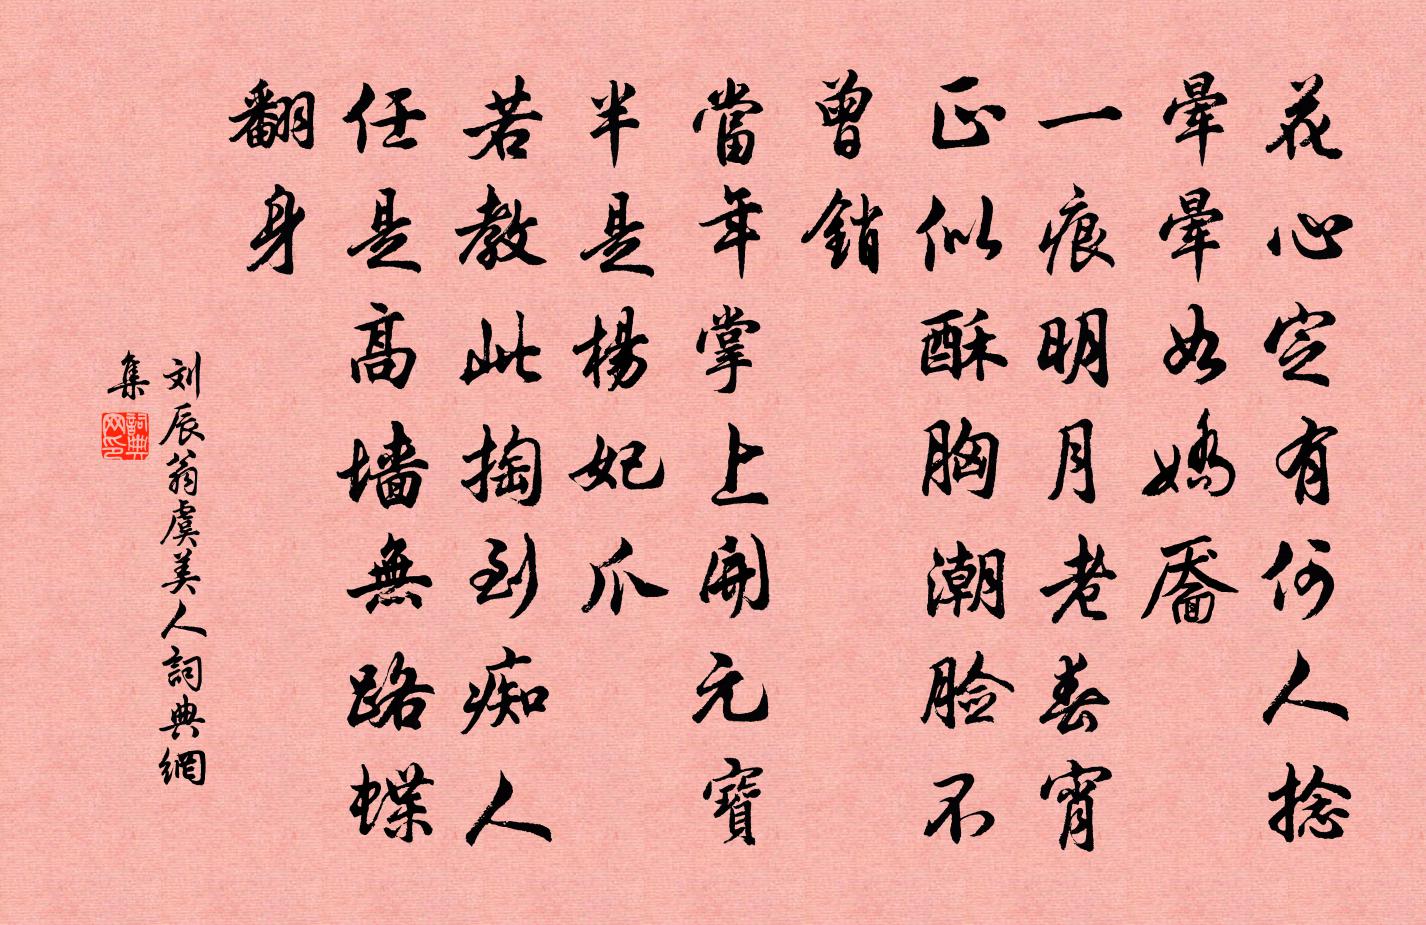 花心定有何人捻
暈暈如嬌靨
一痕明月老春宵
正似酥胸潮臉不
曾銷
當年掌上開元寶
半是楊妃爪
若教此掏到痴人
任是高墻無路蝶
翻身
刘辰翁虞美人詞典網
集
詞典
网印